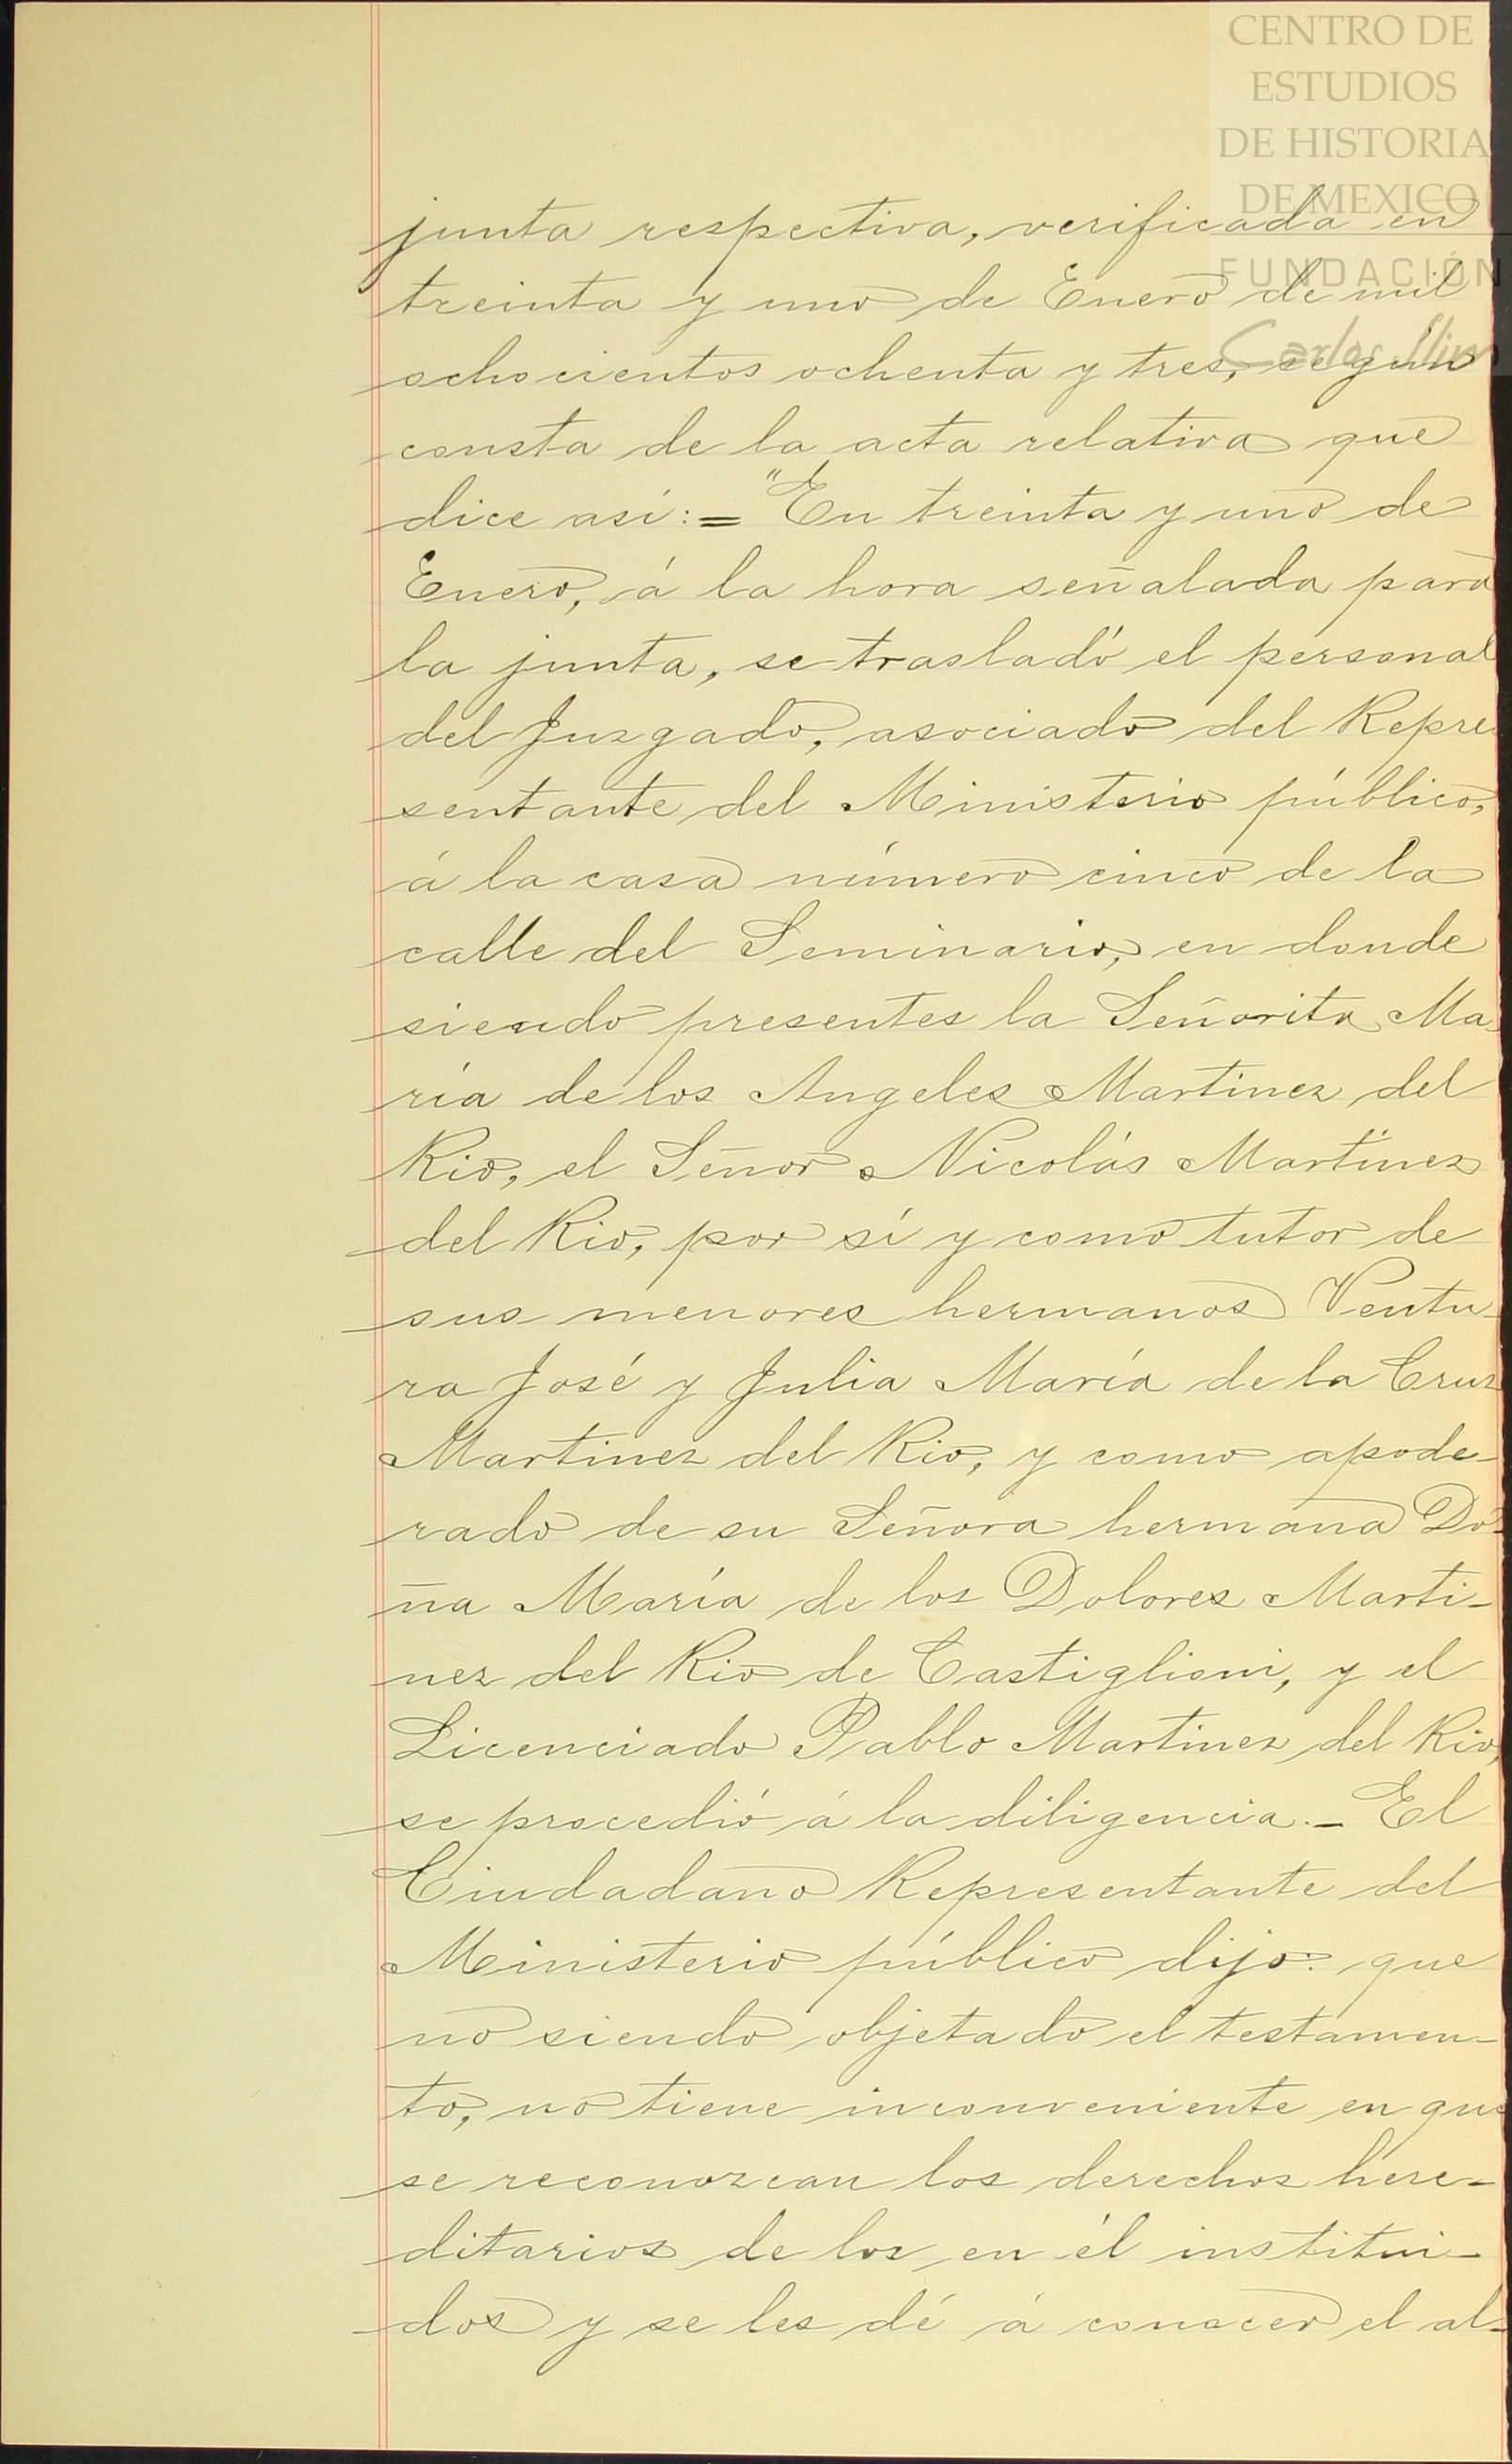 CENTRO DE
ESTUDIOS
DE HISTORIA
DE MEXICO
FUNDACIÓN
Carlos Slim
junta respectiva, verificada en
treinta y uno de Enero de mil
ochocientos ochenta y tres, segun
consta de la acta relativa que
dice así:= "En treinta y uno de
Enero, á la hora señalada para
la junta, se trasladó el personal
del Juzgado, asociado del Repre
sentante del Ministerio público,
á la casa número cinco de la
calle del Seminario, en donde
siendo presentes la Señorita Ma
ría de los Angeles Martinez del
Rio, el Señor Nicolás Martinez
del Rio, por sí y como tutor de
sus menores hermanos Ventu-
ra José y Julia María de la Cruz
Martinez del Rio, y como apode-
rado de su Señora hermana Do-
ña María de los Dolores Marti-
nez del Rio de Castiglioni, y el
Licenciado Pablo Martinez del Rio,
se procedió á la diligencia.- El
Ciudadano Representante del
Ministerio público dijo: que
no siendo objetado el testamen-
to, no tiene inconveniente en que
se reconozcan los derechos here-
ditarios de los en él institui-
dos y se les dé á conocer el al-